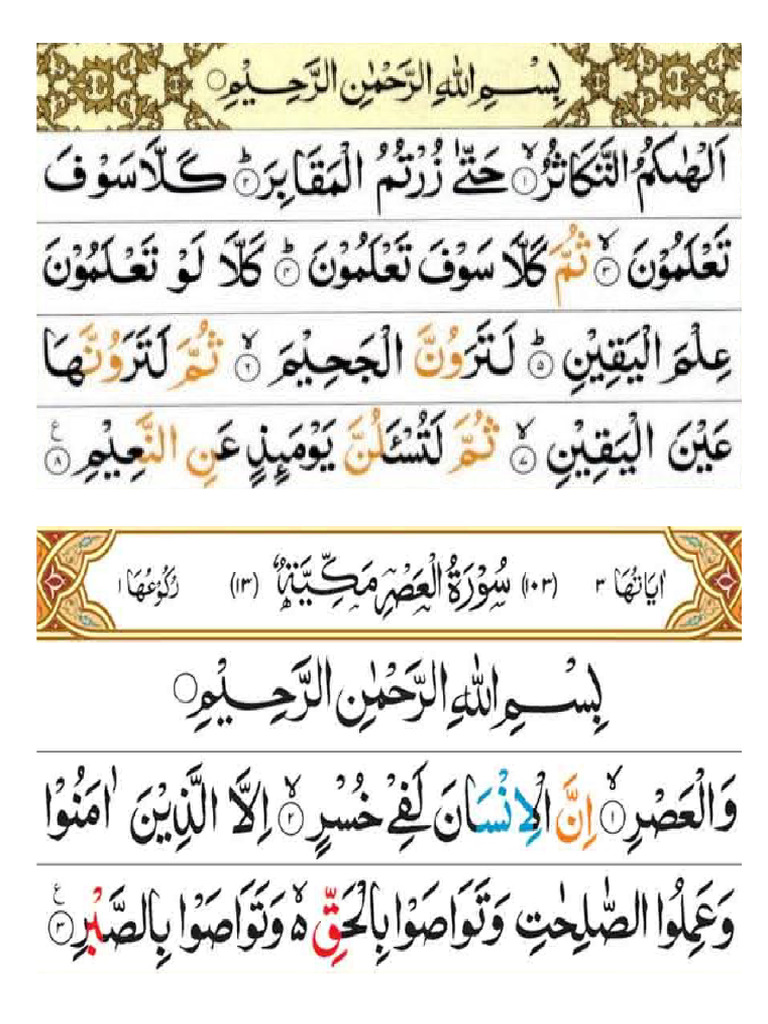 بِسْمِ اللهِ الرَّحْمٰنِ الرَّحِيْمِ ۝
اَلْهٰىكُمُ التَّكَاثُرُ ۙ‏﴿۱﴾ حَتّٰى زُرْتُمُ الْمَقَابِرَ ؕ‏﴿۲﴾ كَلَّا سَوْفَ
تَعْلَمُوْنَ ۙ‏﴿۳﴾ ثُمَّ كَلَّا سَوْفَ تَعْلَمُوْنَ ؕ‏﴿۴﴾ كَلَّا لَوْ تَعْلَمُوْنَ
عِلْمَ الْيَقِيْنِ ؕ‏﴿۵﴾ لَتَرَوُنَّ الْجَحِيْمَ ۙ‏﴿۶﴾ ثُمَّ لَتَرَوُنَّهَا
عَيْنَ الْيَقِيْنِ ۙ‏﴿۷﴾ ثُمَّ لَتُسْـَٔلُنَّ يَوْمَئِذٍ عَنِ النَّعِيْمِ ﴿۸﴾ ع
اٰيَاتُهَا ۳ (۱۰۳) سُوْرَةُ الْعَصْرِ مَكِّيَّةٌ (۱۳) رُكُوْعُهَا ۱
بِسْمِ اللهِ الرَّحْمٰنِ الرَّحِيْمِ ۝
وَالْعَصْرِ ۙ‏﴿۱﴾ اِنَّ الْاِنْسَانَ لَفِىْ خُسْرٍ ۙ‏﴿۲﴾ اِلَّا الَّذِيْنَ اٰمَنُوْا
وَعَمِلُوا الصّٰلِحٰتِ وَتَوَاصَوْا بِالْحَقِّ ۙ۵ وَتَوَاصَوْا بِالصَّبْرِ ﴿۳﴾ ع